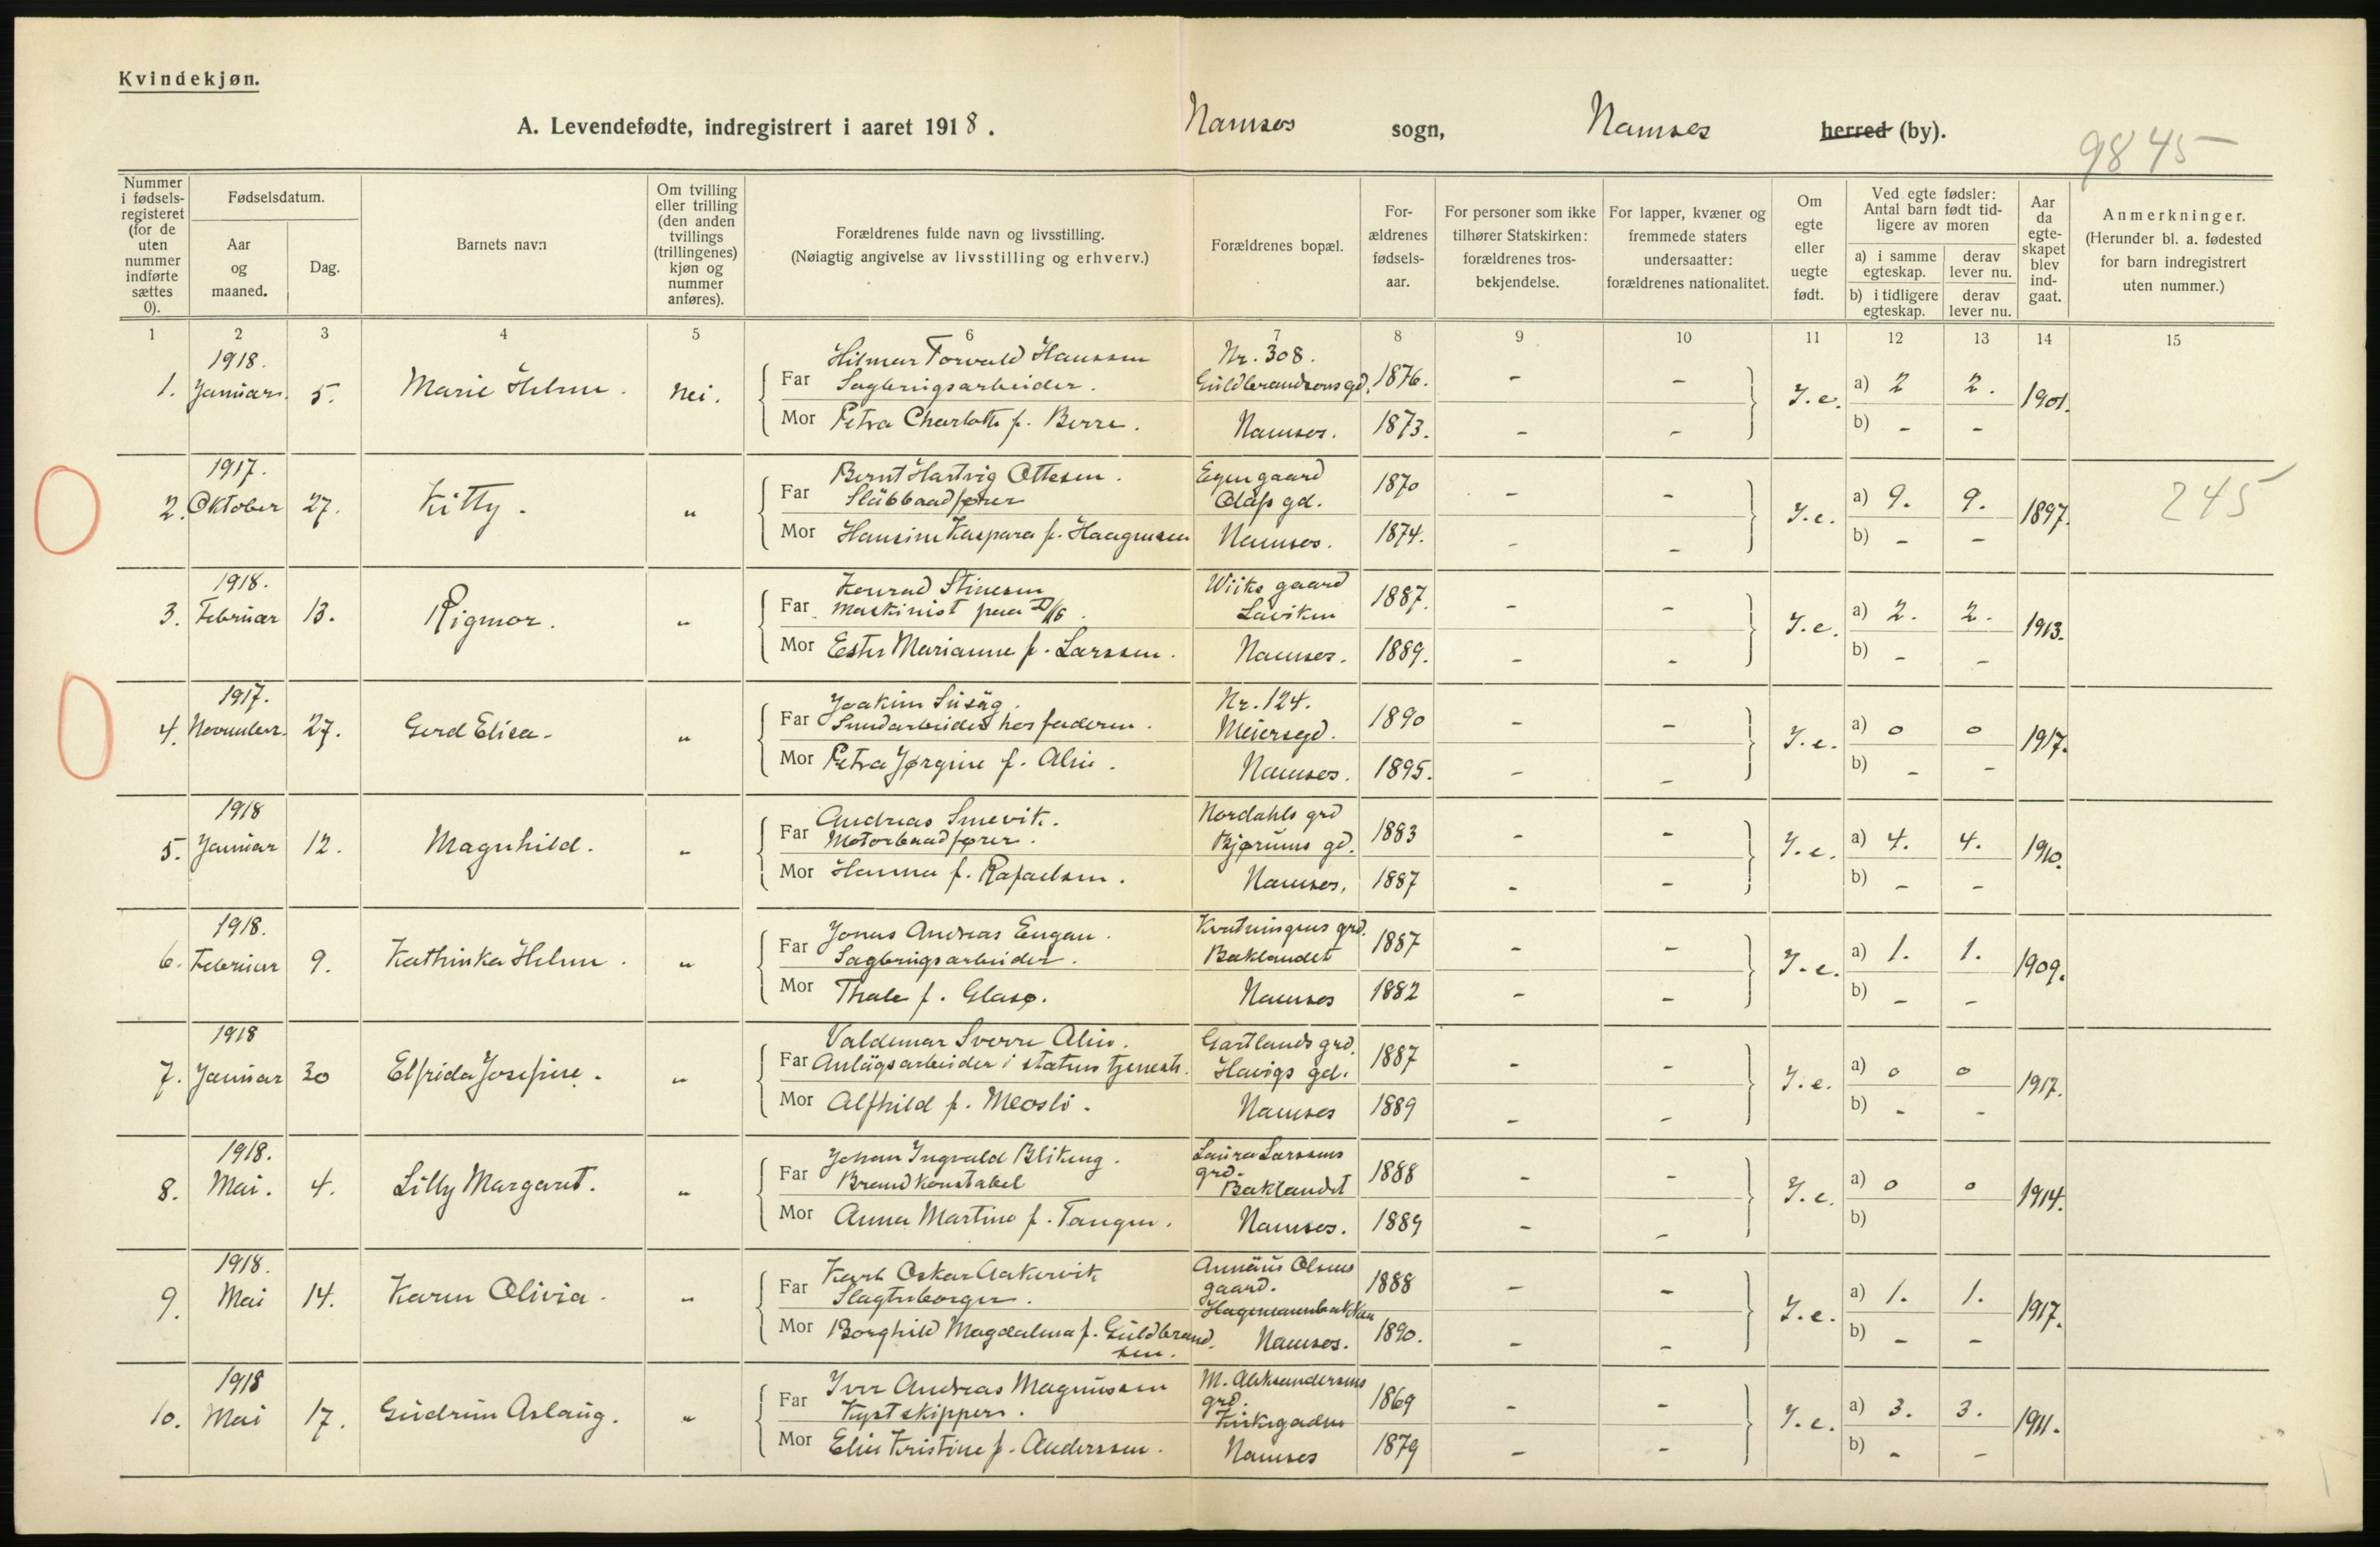 Kvindekjøn.
A. Levendefødte, indregistrert i aaret 1918. Namsos sogn, Namsos herred (by).
9845
Nummer i fødselsregisteret (for de uten nummer indførte sættes 0).
Fødselsdatum.
Aar og maaned.
Dag.
Barnets navn
Om tvilling eller trilling (den anden tvillings (trillingenes) kjøn og nummer anføres).
Forældrenes fulde navn og livsstilling.
(Nøiagtig angivelse av livsstilling og erhverv.)
Forældrenes bopæl.
Forældrenes fødselsaar.
For personer som ikke tilhører Statskirken: forældrenes trosbekjendelse.
For lapper, kvæner og fremmede staters undersaatter: forældrenes nationalitet.
Om egte eller uegte født.
Ved egte fødsler: Antal barn født tidligere av moren
a) i samme egteskap.
derav lever nu.
b) i tidligere egteskap.
derav lever nu.
Aar da egteskapet blev indgaat.
Anmerkninger.
(Herunder bl. a. fødested for barn indregistrert uten nummer.)
1 2 3 4 5 6 7 8 9 10 11 12 13 14 15
1918.
1. Januar. 5. Marie Helene. Nei.
Far Hilmar Torvald Hanssen
Sagbrugsarbeider.
Nr. 308.
Guldbrandsens gd. 1876. - -
Mor Petra Charlotte f. Berre. Namsos. 1873. - -
I.e. a) 2 2. b) - - 1901.
1917.
2. Oktober 27. Kitty. "
Far Bernt Hartvig Ottesen.
Slæbbaadfører
Egen gaard
Olafs gd. 1870 - -
Mor Hansine Kaspara f. Haagensen Namsos. 1874. - -
I.e. a) 9. 9. b) - - 1897. 245
1918.
3. Februar 13. Rigmor. "
Far Konrad Stinesen
Maskinist paa D/S.
Wiiks gaard
Laviken 1887. - -
Mor Ester Marianne f. Larssen. Namsos. 1889. - -
I.e. a) 2. 2. b) - - 1913.
1917.
4. November. 27. Gerd Elisa. "
Far Joakim Süsäg.
hos faderen.
Nr. 124.
Meiersgd. 1890 - -
Mor Petra Jørgine f. Alin. Namsos. 1895. - -
I.e. a) 0 0 b) - - 1917.
1918
5. Januar 12. Magnhild. "
Far Andreas Smevik.
Motorbaadfører.
Nordahls grd
Bjørums gd. 1883 - -
Mor Hanna f. Rafaelsen. Namsos. 1887 - -
I.e. a) 4. 4. b) - - 1910.
1918.
6. Februar 9. Kathinka Helene. "
Far Jonas Andreas Engan.
Sagbrugsarbeider.
Kvatningens grd.
Baklandet 1887 - -
Mor Thale f. Glasø. Namsos 1882 - -
I.e. a) 1. 1. b) - - 1909.
1918
7. Januar 30 Elfrida Josefine. "
Far Valdemar Sverre Alin.
Anlägsarbeider i statens tjeneste.
Gartlands grd.
Havigs gd. 1887 - -
Mor Alfhild f. Meosli. Namsos 1889 - -
I.e. a) 0 0 b) - - 1917.
1918.
8. Mai. 4. Lilly Margaret. "
Far Johan Ingvald Blikeng.
Brandkonstabel
Laura Larssens
grd.
Baklandet 1888 - -
Mor Anna Martine f. Tangen. Namsos. 1889 - -
I.e. a) 0 0 b) 1914.
1918.
9. Mai 14. Karen Olivia. "
Far Karl Oskar Aakervik
Slagteborger.
Annäus Olsens
gaard.
Hagemannbakken 1888 - -
Mor Borghild Magdalena f. Guldbrand
sen. Namsos. 1890. - -
I.e. a) 1. 1. b) - - 1917.
1918
10. Mai 17. Gudrun Aslaug. "
Far Iver Andreas Magnussen
Kystskipper.
M. Aleksandersens
grd.
Kirkegaden 1869 - -
Mor Elin Kristine f. Anderssen. Namsos 1879 - -
I.e. a) 3. 3. b) - - 1911.